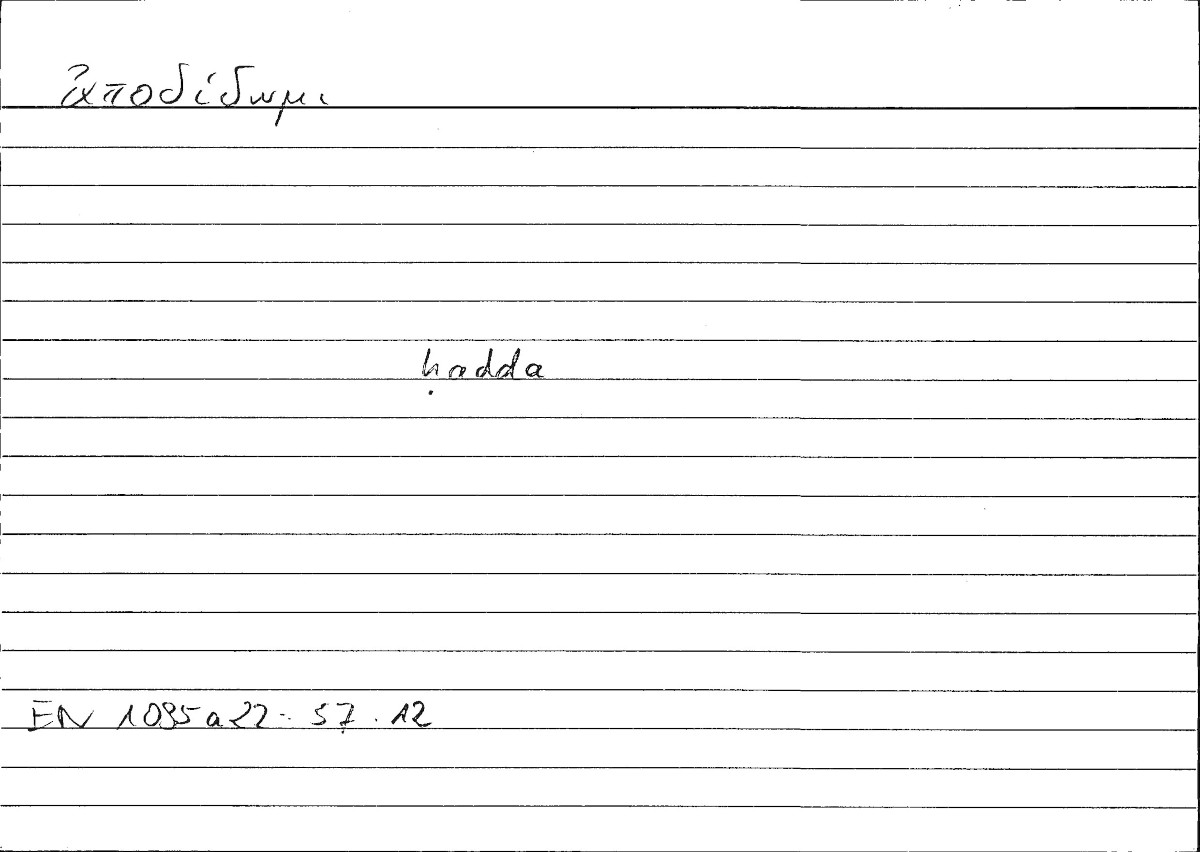 ἀποδίδωμι
ḥadda
EN 1095a22: 57.12